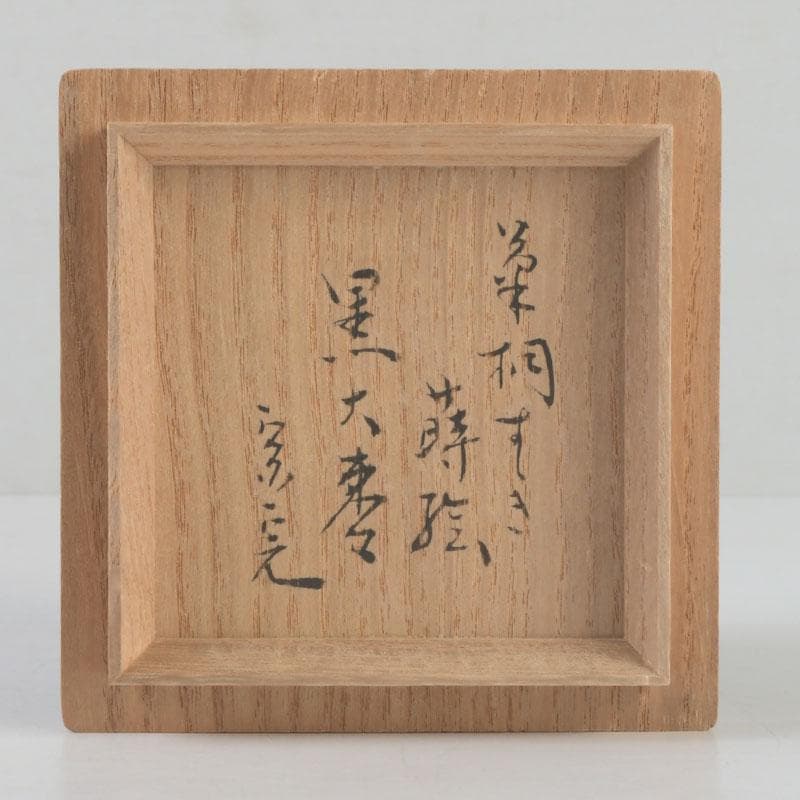 菊桐すゝき
蒔絵
黒大棗
宗完